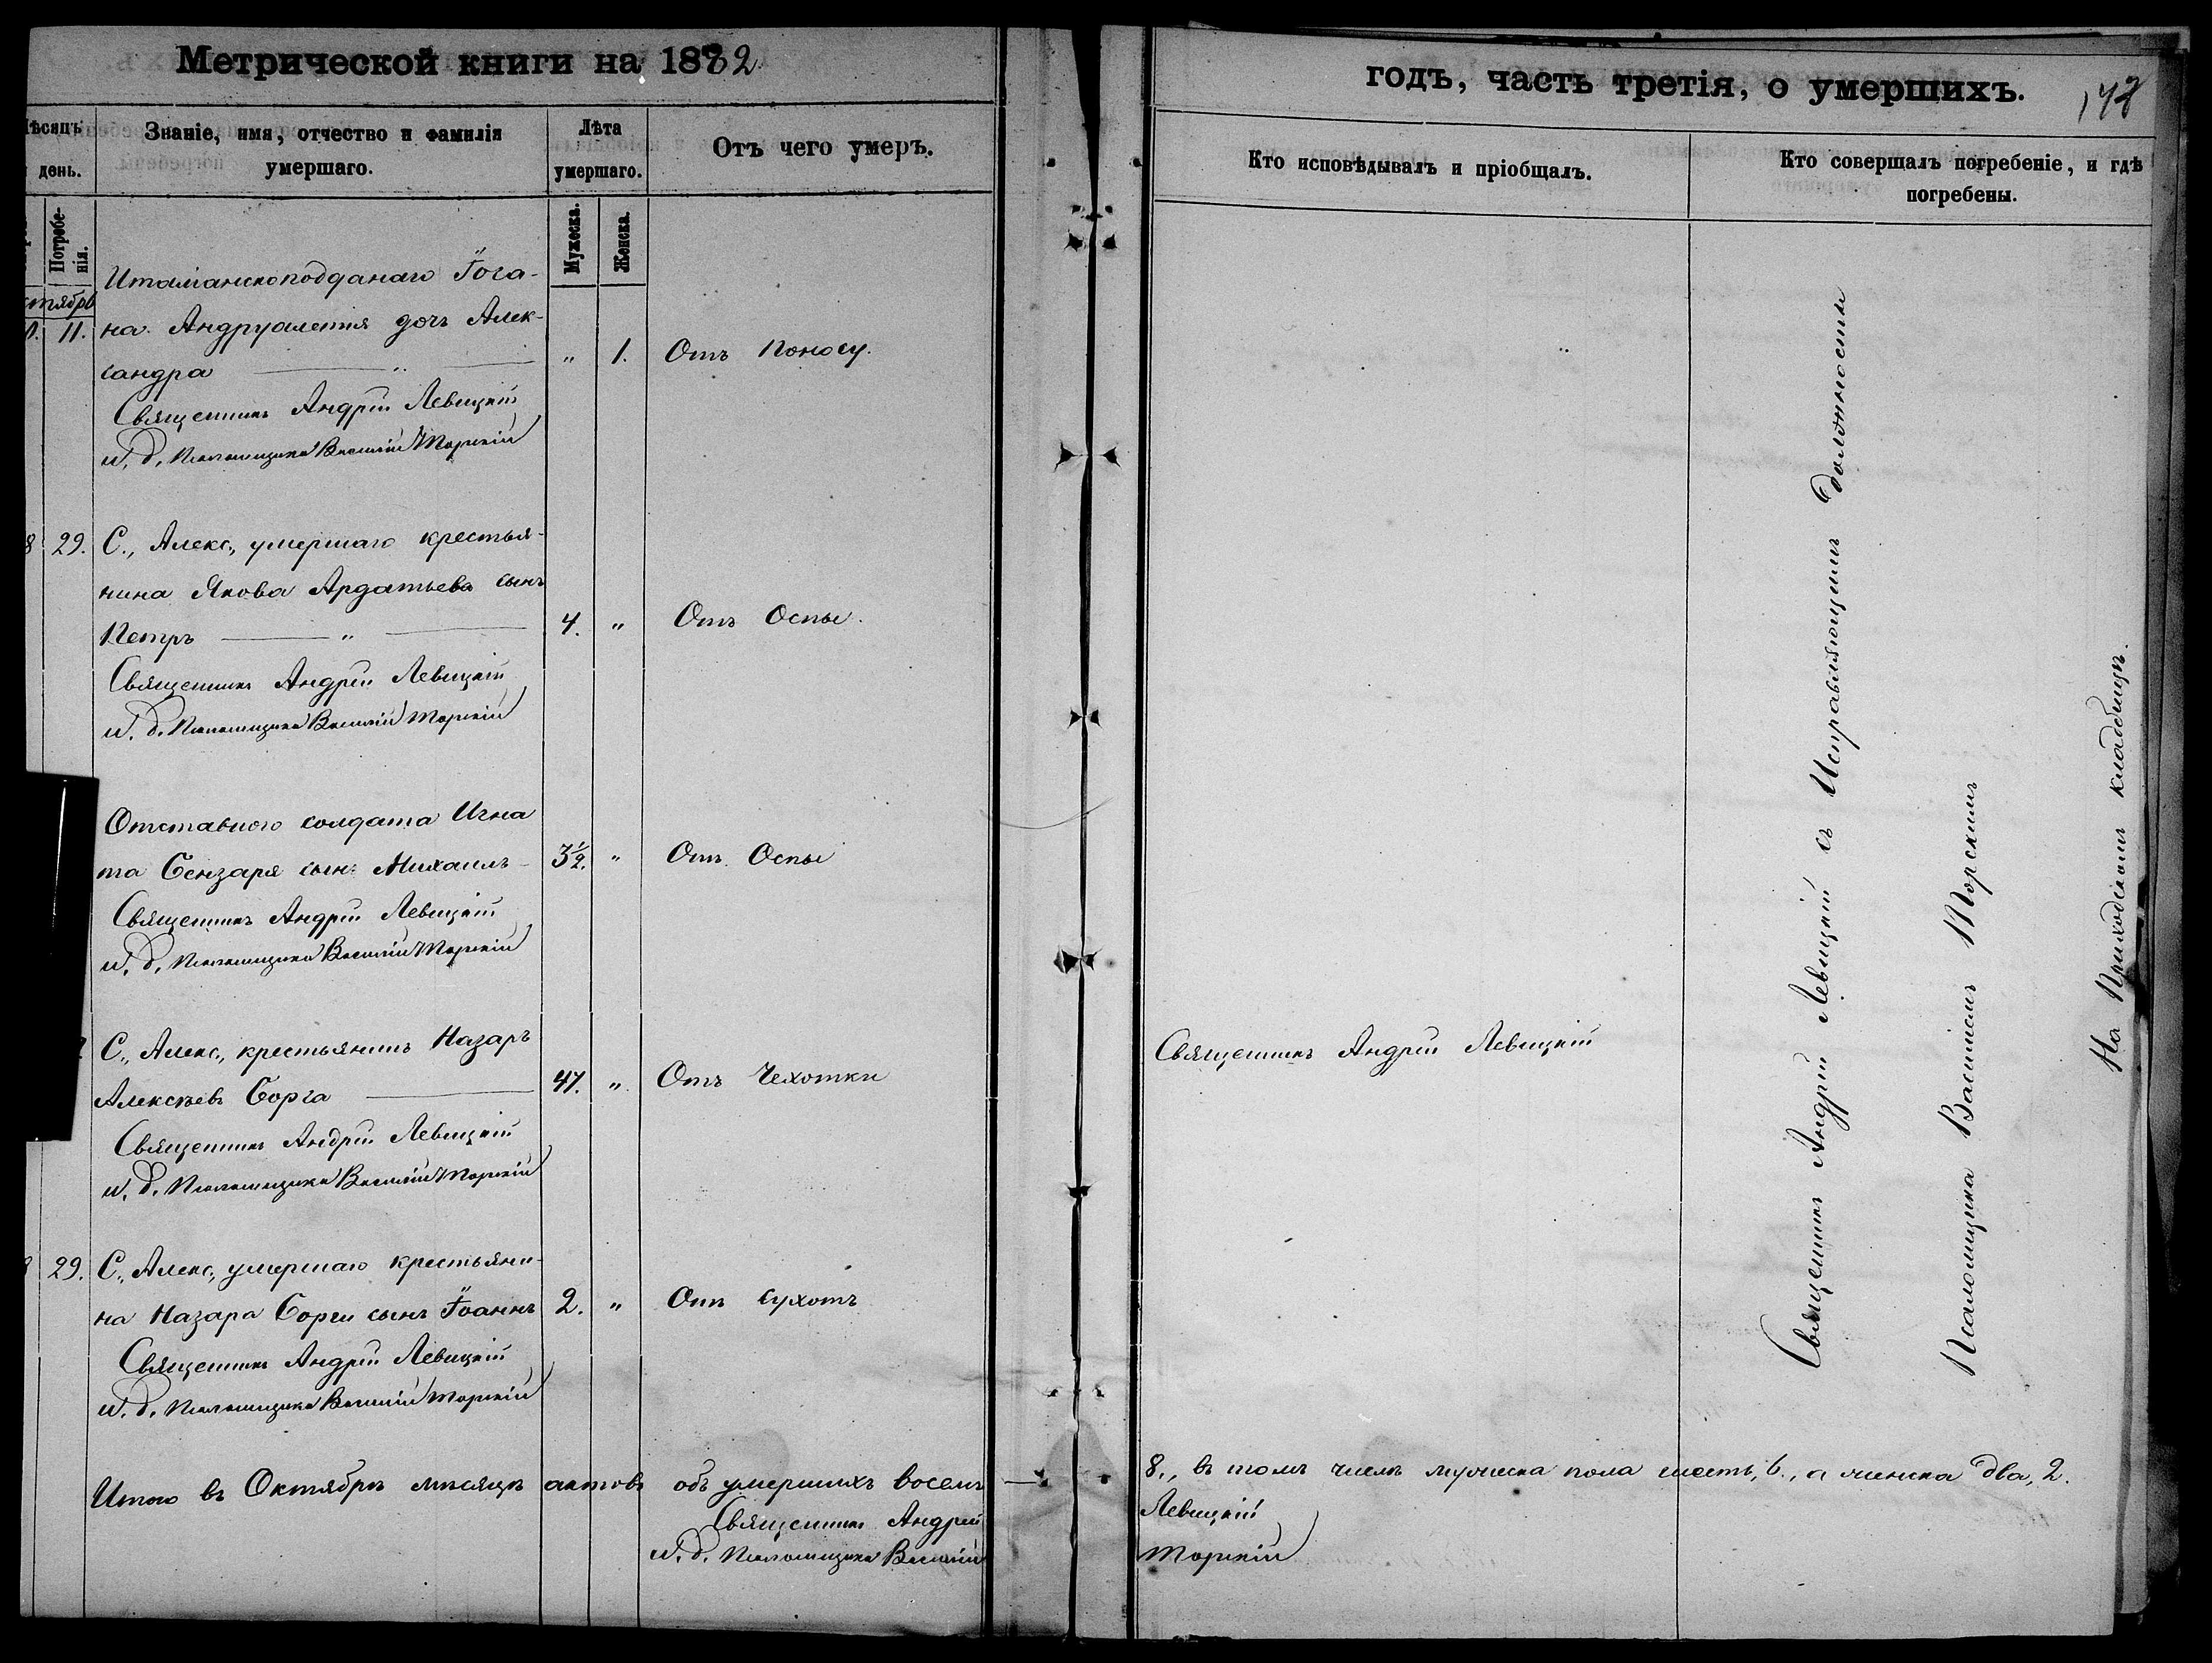 Метрической книги на 1882
годъ, часть третія, о умершихъ.
Мѣсяцъ
день.
Званіе, имя, отчество и фамилія
умершаго.
Лѣта
умершаго.
Отъ чего умеръ.
Кто исповѣдывалъ и пріобщалъ.
Кто совершалъ погребеніе, и гдѣ
погребены.
Погребе-
нія.
Мужеска.
Женска.
Италіанскоподданаго Іога-
11. на Андруалетія дочь Алек-
сандра „ 1. Отъ Поносу.
Священникъ Андрій Левицкій
и. д. Псаломщика Василій Торскій
29. С., Алекс., умершаго крестья-
нина Якова Ардатьева сынъ
Петръ „ 4. „ Отъ Оспы.
Священникъ Андрій Левицкій
и. д. Псаломщика Василій Торскій
Отставного солдата Игна
та Бензаря сынъ Михаилъ 3½. „ Отъ Оспы
Священникъ Андрій Левицкій
и. д. Псаломщика Василій Торскій
С., Алекс., крестьянинъ Назаръ
Алексѣевъ Борга 47. „ Отъ Чехотки
Священникъ Андрій Левицкій
Священникъ Андрій Левицкій
и. д. Псаломщика Василій Торскій
29. С., Алекс., умершаго крестьяни-
на Назара Борги сынъ Іоаннъ 2. „ Отъ Сухотъ
Священникъ Андрій Левицкій
и. д. Псаломщика Василій Торскій
Священникъ Андрій Левицкій съ Исправляющимъ должность
Псаломщика Василіемъ Торскимъ
На Приходскомъ кладбищѣ.
Итого въ Октябрѣ мѣсяцѣ актовъ объ умершихъ восемь 8., въ томъ числѣ мужеска пола шесть, 6., а женска два, 2.
Священникъ Андрій Левицкій
и. д. Псаломщика Василій Торскій